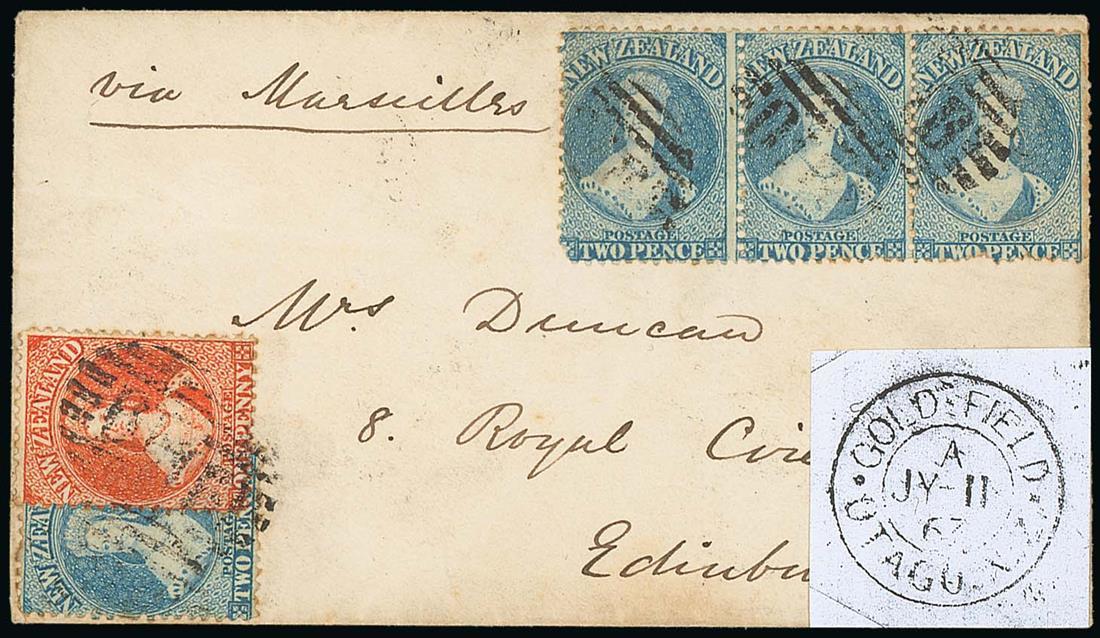 via Marseilles
NEW ZEALAND NEW ZEALAND NEW ZEALAND
POSTAGE POSTAGE POSTAGE
TWO PENCE TWO PENCE TWO PENCE
Mrs Duncan
8. Royal Circ
Edinbu
NEW ZEALAND
POSTAGE
ONE PENNY
NEW ZEA
POSTAGE
TWO PEN
GOLD-FIELD
A
JY-11
63
OTAGO